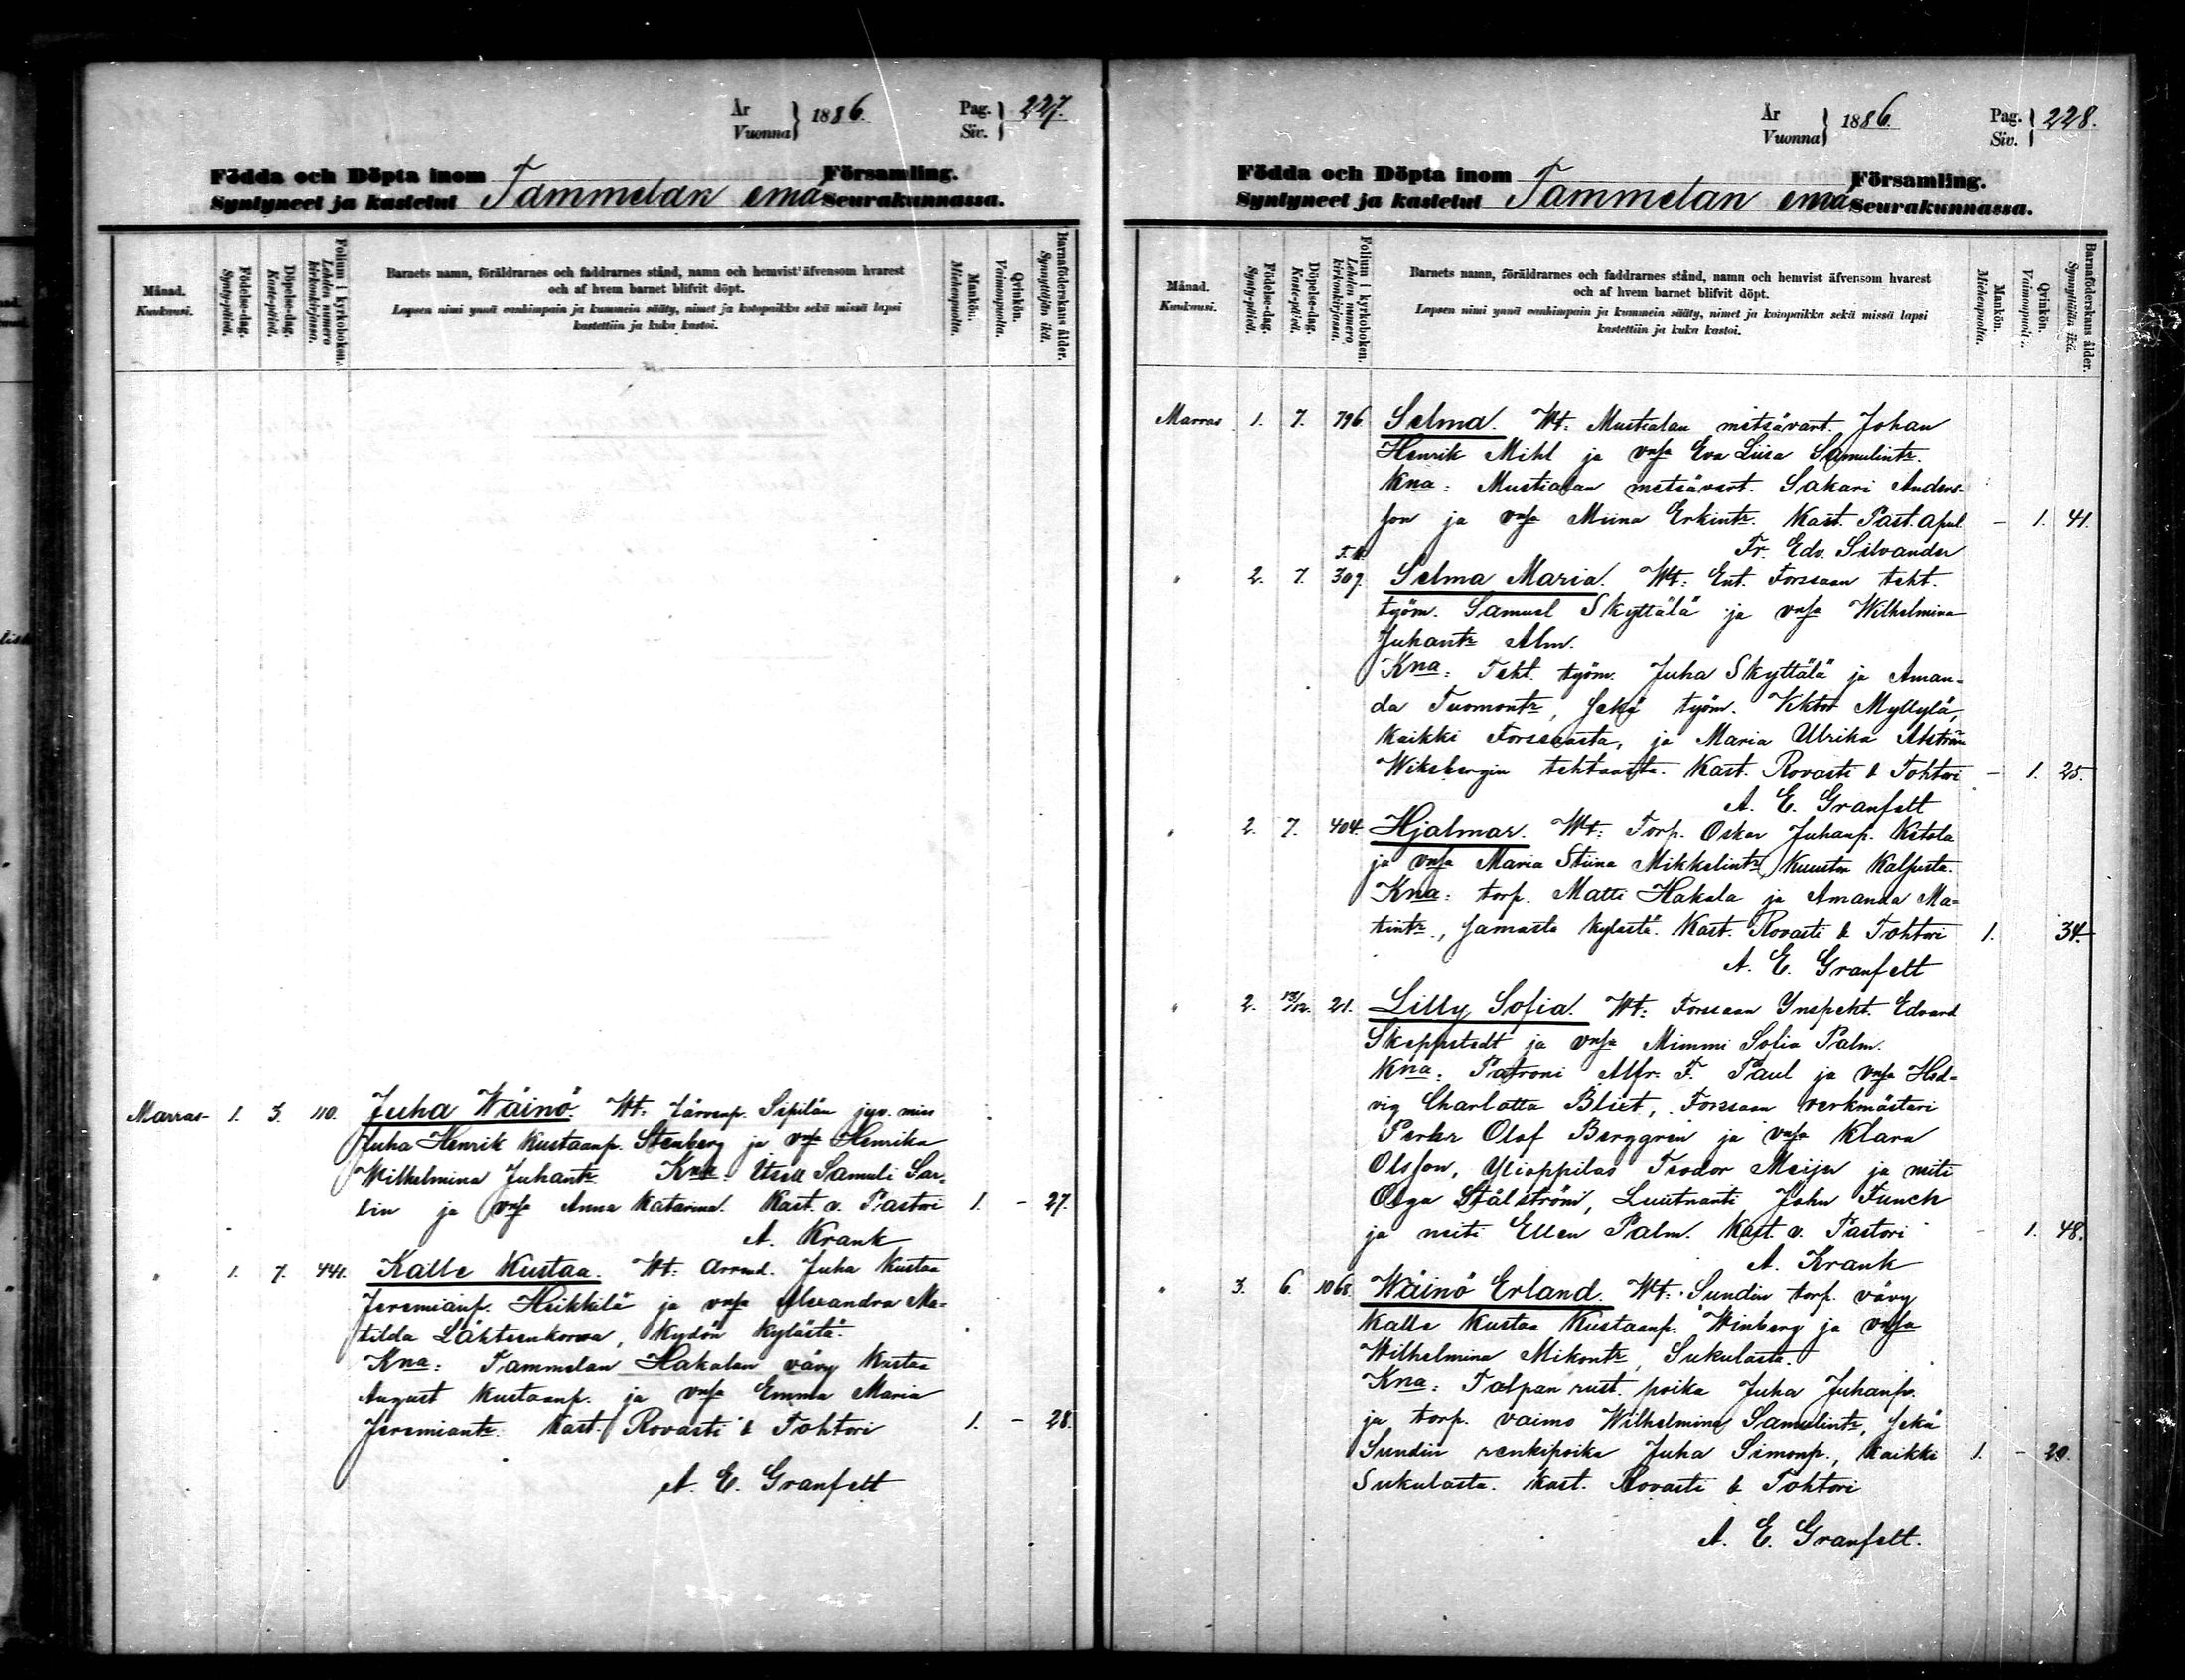 År
Vuonna } 1886. Pag.
Siv. } 227.
Födda och Döpta inom Församling.
Syntyneet ja kastetut Tammelan emä Seurakunnassa.
Månad.
Kuukausi.
Födelse-dag.
Synty-päivä.
Döpelse-dag.
Kaste-päivä.
Folium i kyrkoboken.
Lehden numero
kirkonkirjassa.
Barnets namn, föräldrarnes och faddrarnes stånd, namn och hemvist äfvensom hvarest
och af hvem barnet blifvit döpt.
Lapsen nimi ynnä vanhimpain ja kummein sääty, nimet ja kotopaikka sekä missä lapsi
kastettiin ja kuka kastoi.
Mankön.
Miehenpuolta.
Qvinkön.
Vaimonpuolta.
Barnaföderskans ålder.
Synnyttäjän ikä.
Marras 1. 3. 110. Juha Wäinö. Wt: Sipilän jyv. mies
Juha Henrik Kustaanp. Stenberg ja vmsa Henrika
Wilhelmina Juhantr. Kna: Itsell Samuli Sar-
lin ja vmsa Anna Katarina. Kast. v. Pastori 1. - 27.
A. Krank
" 1. 7. 441. Kalle Kustaa. Wt: Arrend. Juha Kustaa
Jeremianp. Heikkilä ja vmsa Alexandra Ma-
tilda Lähteenkorva, Kydön kylästä.
Kna: Tammelan Hakalan vävy Kustaa
August Kustaanp. ja vmsa Emma Maria
Jeremiantr. Kast. Rovasti & Tohtori 1. - 28.
A. E. Granfelt
År
Vuonna } 1886. Pag.
Siv. } 228.
Födda och Döpta inom Församling.
Syntyneet ja kastetut Tammelan emä Seurakunnassa.
Månad.
Kuukausi.
Födelse-dag.
Synty-päivä.
Döpelse-dag.
Kaste-päivä.
Folium i kyrkoboken.
Lehden numero
kirkonkirjassa.
Barnets namn, föräldrarnes och faddrarnes stånd, namn och hemvist äfvensom hvarest
och af hvem barnet blifvit döpt.
Lapsen nimi ynnä vanhimpain ja kummein sääty, nimet ja kotopaikka sekä missä lapsi
kastettiin ja kuka kastoi.
Mankön.
Miehenpuolta.
Qvinkön.
Vaimonpuolta.
Barnaföderskans ålder.
Synnyttäjän ikä.
Marras 1. 7. 796. Selma. Wt: Mustialan metsävart. Johan
Henrik Mihl ja vmsa Eva Liisa Samulintr.
Kna: Mustialan metsävart. Sakari Anders-
son ja vmsa Miina Erkintr. Kast. Past. apul. - 1. 41.
Fr. Edv. Silvander
" 2. 7. 309. Selma Maria. Wt: Ent. Forssan teht.
työm. Samuel Skyttälä ja vmsa Wilhelmina
Juhantr. Alm.
Kna: Teht. työm. Juha Skyttälä ja Aman-
da Tuomontr, sekä työm. Viktor Myllylä,
kaikki Forssasta, ja Maria Ulrika
Wiksbergin tehtaasta. Kast. Rovasti & Tohtori - 1. 25.
A. E. Granfelt
" 2. 7. 404. Hjalmar. Wt: Torp. Oskar Juhanp. Ketola
ja vmsa Maria Stiina Mikkelintr,
Kna: torp. Matti Hakala ja Amanda Ma-
tintr., samasta kylästä. Kast. Rovasti & Tohtori 1. 34.
A. E. Granfelt
" 2. 13/12. 21. Lilly Sofia. Wt: Forssan Ynspekt. Edvard
Skeppstedt ja vmsa Mimmi Sofia Palm.
Kna: Patroni Alfr. F. Paul ja vmsa Hed-
vig Charlotta Bliet, Forssan verkmästari
Perhr Olof Berggren ja vmsa Klara
Olsson, Ylioppilas Teodor Meijer ja neiti
Olga Stålström, Luutnanti John Funch
ja neiti Ellen Palm. Kast. v. Pastori - 1. 48.
A. Krank
" 3. 6. 1068. Wäinö Erland. Wt: Sundin torp. vävy
Kalle Kustaa Kustaanp. Winberg ja vmsa
Wilhelmina Mikontr, Sukulasta.
Kna: Talpan rust. poika Juha Juhanp.
ja torp. vaimo Wilhelmina Samulintr, sekä
Sundin renkipoika Juha Simonp., kaikki 1. - 29.
Sukulasta. Kast. Rovasti & Tohtori
A. E. Granfelt.